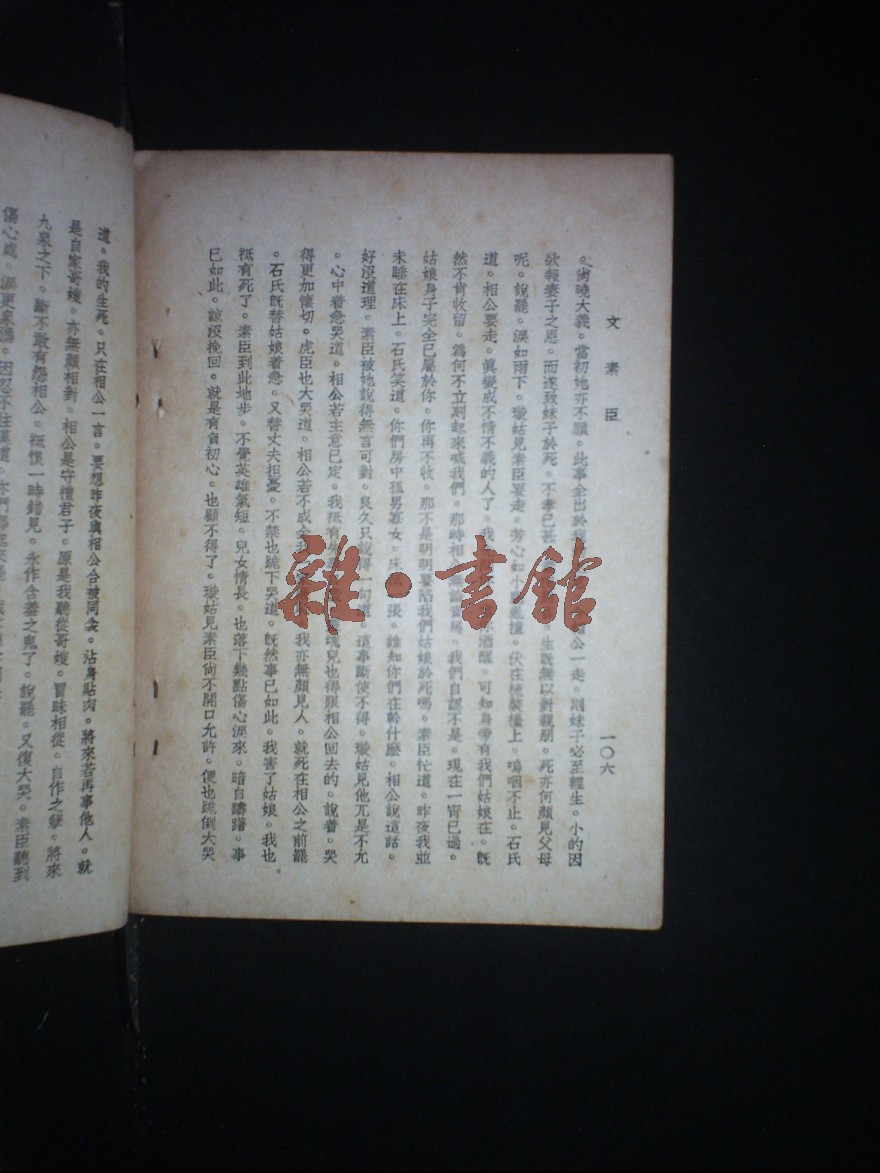 文素臣
一〇六
。尚曉大義。當初她亦不願。此事全出於 公一走。則妹子必至輕生。小的因
欲報妻子之恩。而遂致妹子於死。不孝已甚 生既無以對親朋。死亦何顏見父母
呢。說罷。淚如雨下。璇姑見素臣要走。芳心如小 撞。伏在 上。嗚咽不止。石氏
道。相公要走。眞變成不情不義的人了。我 酒醒。可知身旁有我們姑娘在。旣
然不肯收留。為何不立刻起來喊我們。那時相 我們自認不是。現在一宵已過。
姑娘身子完全已屬於你。你再不收。那不是明明要陷我們姑娘於死嗎。素臣忙道。昨夜我並
未睡在床上。石氏笑道。你們房中孤男寡女。床 張。誰知你們在幹什麼。相公說這話。
好沒道理。素臣被她說得無言可對。良久只說得一句道。這事斷使不得。璇姑見他兀是不允
。心中着急哭道。相公若主意已定。我祗有 魂兒也得跟相公回去的。說着。哭
得更加悽切。虎臣也大哭道。相公若不成全我 我亦無顏見人。就死在相公之前罷
。石氏旣替姑娘着急。又替丈夫担憂。不禁也跪下哭道。旣然事已如此。我害了姑娘。我也
祗有死了。素臣到此地步。不覺英雄氣短。兒女情長。也落下幾點傷心淚來。暗自躊躇。事
已如此。諒沒挽回。就是有負初心。也顧不得了。璇姑見素臣尙不開口允許。便也跪倒大哭
道。我的生死。只在相公一言。要想昨夜與相公合被同衾。沾身貼肉。將來若再事他人。就
是自家哥嫂。亦無顏相對。相公是守禮君子。原是我聽從哥嫂。冒昧相從。自作之孽。將來
九泉之下。斷不敢有怨相公。祗恨一時錯見。永作含羞之鬼了。說罷。又復大哭。素臣聽到
傷心處。淚更泉湧。因忍不住哭道。你們都起來罷。
雜·書館